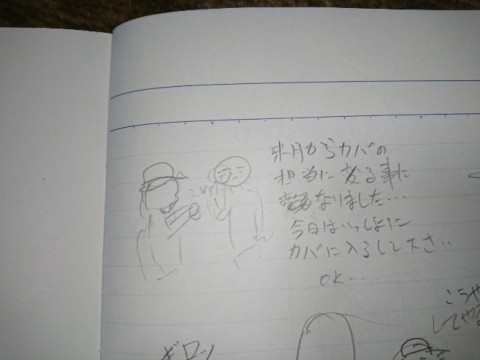 来月からカバの
担当に変る事に
なりました…
今日はいっしょに
カバに入るして下さい
OK…
こうや
してやる
ギロッ